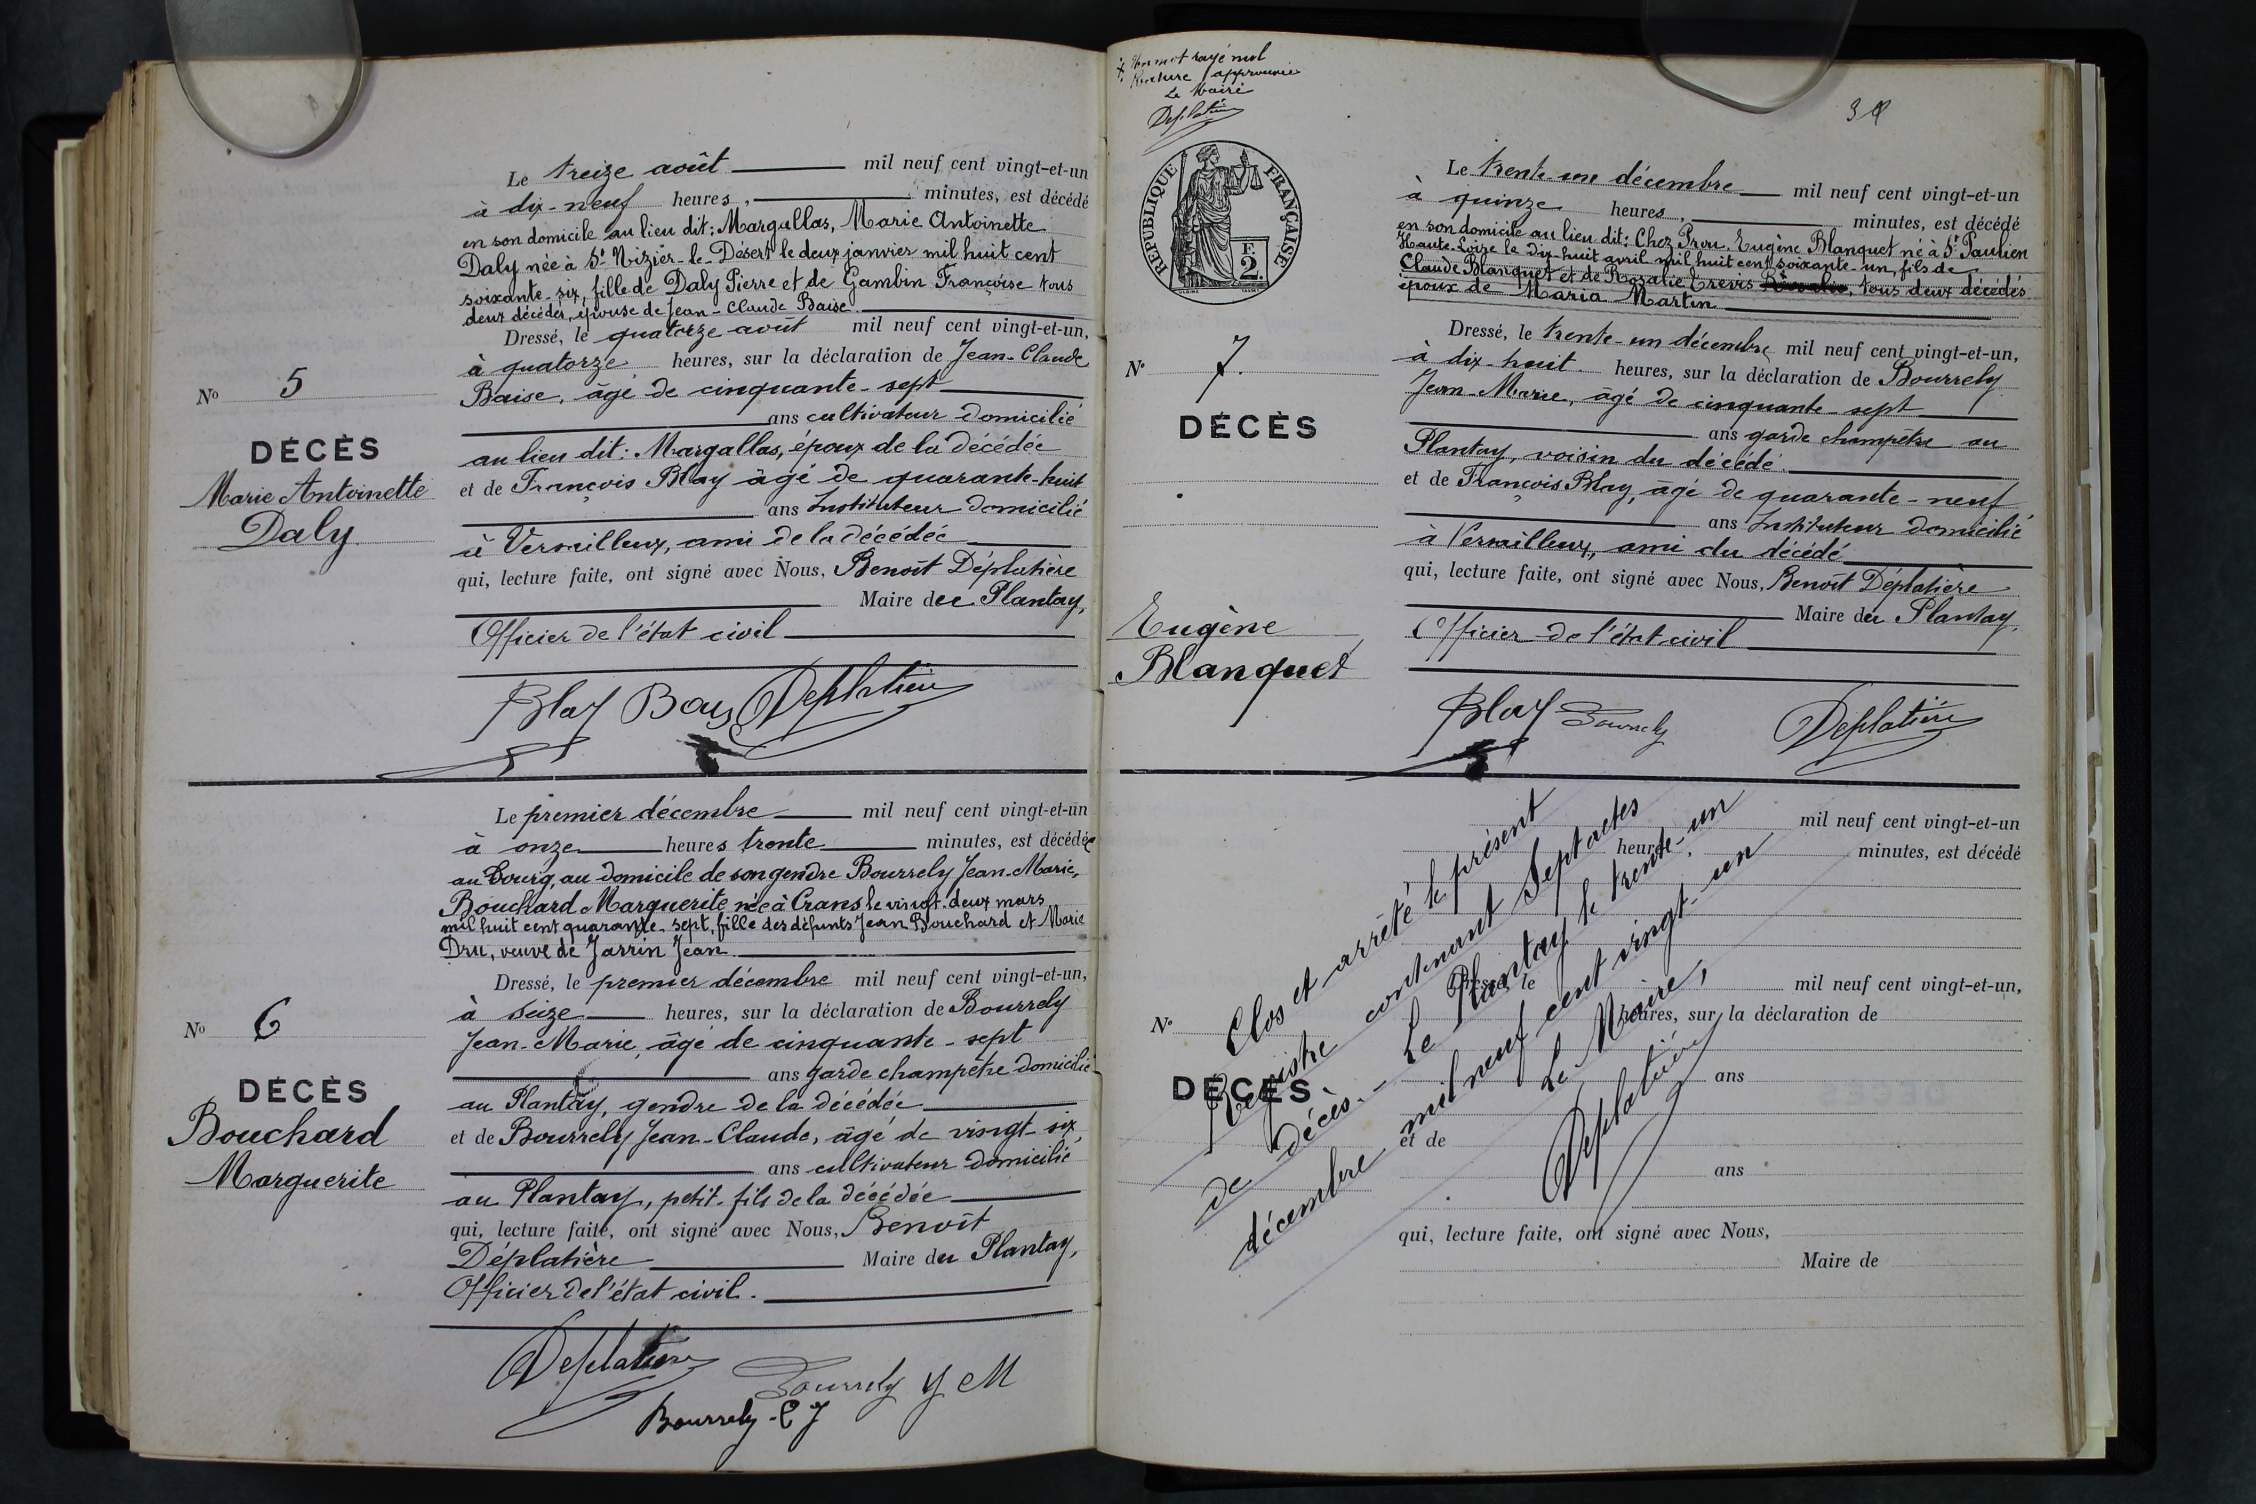 Le treize août mil neuf cent vingt-et-un
à dix-neuf heures, minutes, est décédé
en son domicile au lieu dit: Margallas, Marie Antoinette
Daly née à St Nizier-le-Désert le deux janvier mil huit cent
soixante-six, fille de Daly Pierre et de Gambin Françoise tous
deux décédés, épouse de Jean-Claude Baise.
Dressé, le quatorze août mil neuf cent vingt-et-un,
à quatorze heures, sur la déclaration de Jean-Claude
Baise, âgé de cinquante-sept
ans cultivateur domicilié
au lieu dit: Margallas, époux de la décédée
et de François Blay âgé de quarante-huit
ans Instituteur domicilié
à Versailleux, ami de la décédée
qui, lecture faite, ont signé avec Nous, Benoît Déplatière
Maire du Plantay,
Officier de l'état civil
Blay Bais Deplatière
No 5
DÉCÈS
Marie Antoinette
Daly
Le premier décembre mil neuf cent vingt-et-un
à onze heures trente minutes, est décédée
au Bourg, au domicile de son gendre Bourrely Jean-Marie,
Bouchard Marguerite née à Crans le vingt-deux mars
mil huit cent quarante-sept, fille des défunts Jean Bouchard et Marie
Dru, veuve de Jarrin Jean
Dressé, le premier décembre mil neuf cent vingt-et-un,
à seize heures, sur la déclaration de Bourrely
Jean-Marie, âgé de cinquante-sept
ans garde champêtre domicilié
au Plantay, gendre de la décédée
et de Bourrely Jean-Claude, âgé de vingt-six,
ans cultivateur domicilié
au Plantay, petit-fils de la décédée
qui, lecture faite, ont signé avec Nous, Benoît
Déplatière Maire du Plantay,
Officier de l'état civil.
Deplatière Bourrely J M
Bourrely-C J
No 6
DÉCÈS
Bouchard
Marguerite
Un mot rayé nul
Rature approuvée
Le Maire
Deplatière
RÉPUBLIQUE FRANÇAISE
F.
2.
Le trente-un décembre mil neuf cent vingt-et-un
à quinze heures, minutes, est décédé
en son domicile au lieu dit: Chez Prou, Eugène Blanquet né à St Paulien
Haute-Loire le dix-huit avril mil huit cent soixante-un, fils de
Claude Blanquet et de Rosalie Trevis, tous deux décédés
époux de Maria Martin
Dressé, le trente-un décembre mil neuf cent vingt-et-un,
à dix-huit heures, sur la déclaration de Bourrely
Jean-Marie, âgé de cinquante-sept
ans garde champêtre au
Plantay, voisin du décédé.
et de François Blay, âgé de quarante-neuf
ans Instituteur domicilié
à Versailleux, ami du décédé
qui, lecture faite, ont signé avec Nous, Benoît Déplatière
Maire du Plantay,
Officier de l'état civil
Blay Bourrely Deplatière
No 7.
DÉCÈS
Eugène
Blanquet
mil neuf cent vingt-et-un
heures, minutes, est décédé
Dressé, le mil neuf cent vingt-et-un,
heures, sur la déclaration de
ans
et de
ans
qui, lecture faite, ont signé avec Nous,
Maire de
No
DÉCÈS
Clos et arrêté le présent
Registre contenant Sept actes
de décès. - Le Plantay le trente-un
décembre mil neuf cent vingt-un
Le Maire,
Deplatière